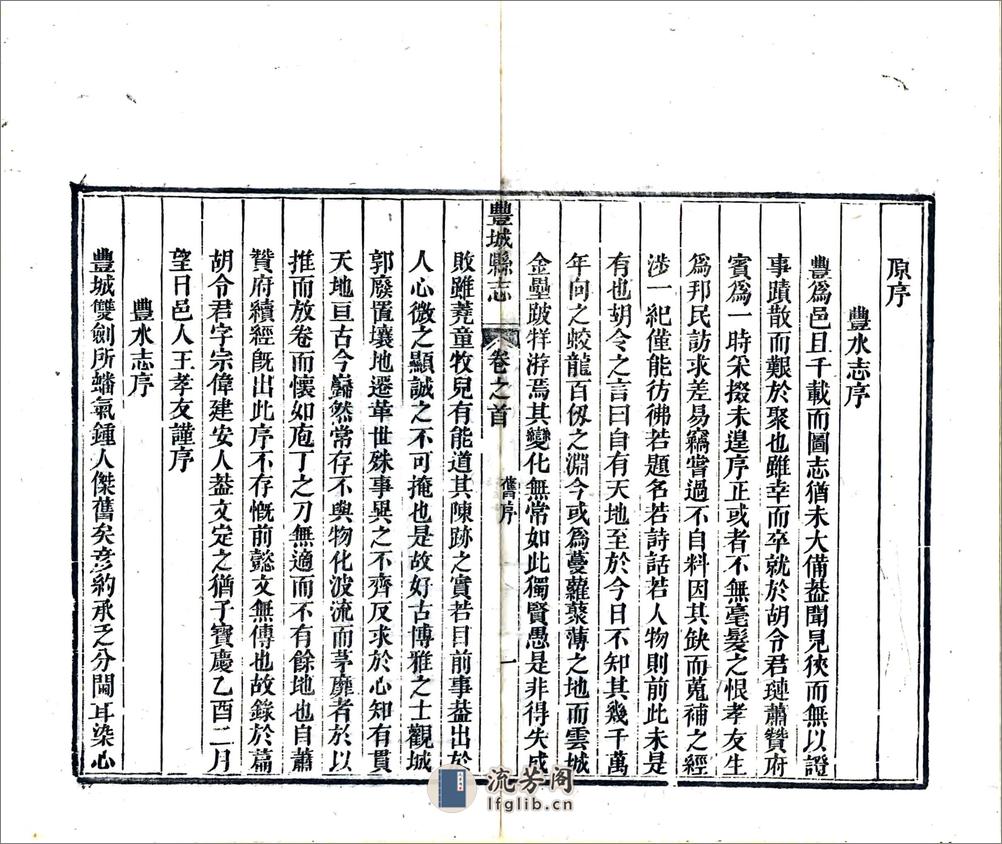 原序
豐水志序
豐爲邑且千載而圖志猶未大備葢聞見狹而無以證
事蹟散而艱於聚也雖幸而卒就於胡令君璉蕭贊府
賓爲一時采掇未遑序正或者不無毫髮之恨孝友生
爲邦民訪求差易竊嘗過不自料因其缺而蒐補之經
涉一紀僅能彷彿若題名若詩話若人物則前此未是
有也胡令之言曰自有天地至於今日不知其幾千萬
年向之蛟龍百仭之淵今或爲蔓蘿藂薄之地而雲城
金壘跛牂游焉其變化無常如此獨賢愚是非得失成
豐城縣志
卷之首
舊序
一
敗雖蕘童牧兒有能道其陳跡之實若目前事葢出於
人心微之顯誠之不可掩也是故好古博雅之士觀城
郭廢置壤地遷革世殊事異之不齊反求於心知有貫
天地亘古今巋然常存不與物化波流而茅靡者於以
推而放卷而懷如庖丁之刀無適而不有餘地也自蕭
贊府續經旣出此序不存慨前懿文無傳也故錄於篇
胡令君字宗偉建安人葢文定之猶子寶慶乙酉二月
望日邑人王孝友謹序
豐水志序
豐城雙劍所蟠氣鍾人傑舊矣彥約承乏分閫耳染心
流芳阁
lfglib.cn